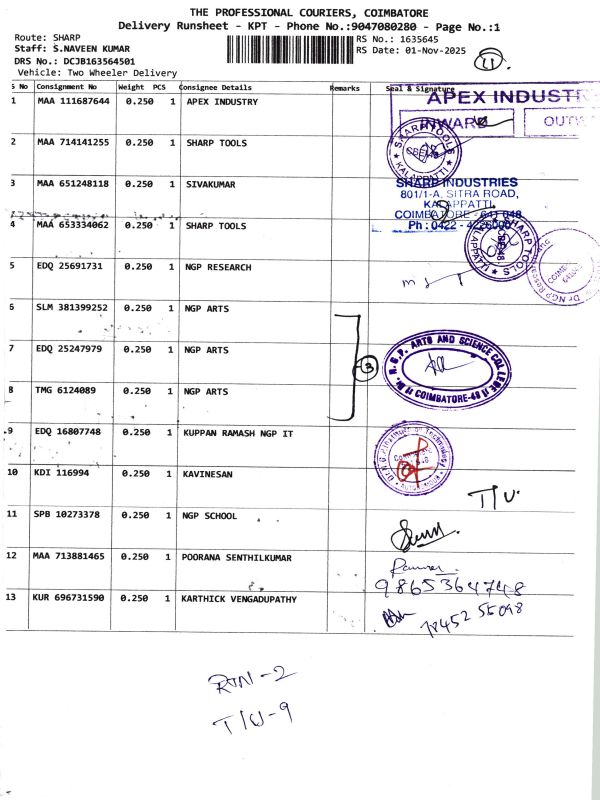 THE PROFESSIONAL COURIERS, COIMBATORE
Delivery Runsheet - KPT - Phone No.:9047080280 - Page No.:1
Route: SHARP
RS No.: 1635645
Staff: S.NAVEEN KUMAR
RS Date: 01-Nov-2025
DRS No.: DCJB163564501
Vehicle: Two Wheeler Delivery
S No Consignment No Weight PCS Consignee Details Remarks Seal & Signature
1 MAA 111687644 0.250 1 APEX INDUSTRY
APEX INDUSTR
INWARD OUTW
2 MAA 714141255 0.250 1 SHARP TOOLS
SHARP TOOLS
KALAPPATTI
3 MAA 651248118 0.250 1 SIVAKUMAR
SHARP INDUSTRIES
801/1-A, SITRA ROAD,
KALAPPATTI,
COIMBATORE - 641 048
Ph : 0422 - 4226000
4 MAA 653334062 0.250 1 SHARP TOOLS
SHARP TOOLS
KALAPPATTI
5 EDQ 25691731 0.250 1 NGP RESEARCH
6 SLM 381399252 0.250 1 NGP ARTS
7 EDQ 25247979 0.250 1 NGP ARTS
3
Dr. N.G.P. ARTS AND SCIENCE COLLEGE
COIMBATORE-48
8 TMG 6124089 0.250 1 NGP ARTS
9 EDQ 16807748 0.250 1 KUPPAN RAMASH NGP IT
10 KDI 116994 0.250 1 KAVINESAN
T/U.
11 SPB 10273378 0.250 1 NGP SCHOOL
12 MAA 713881465 0.250 1 POORANA SENTHILKUMAR
9865364748
13 KUR 696731590 0.250 1 KARTHICK VENGADUPATHY
78452 55098
RTN-2
T/U-9